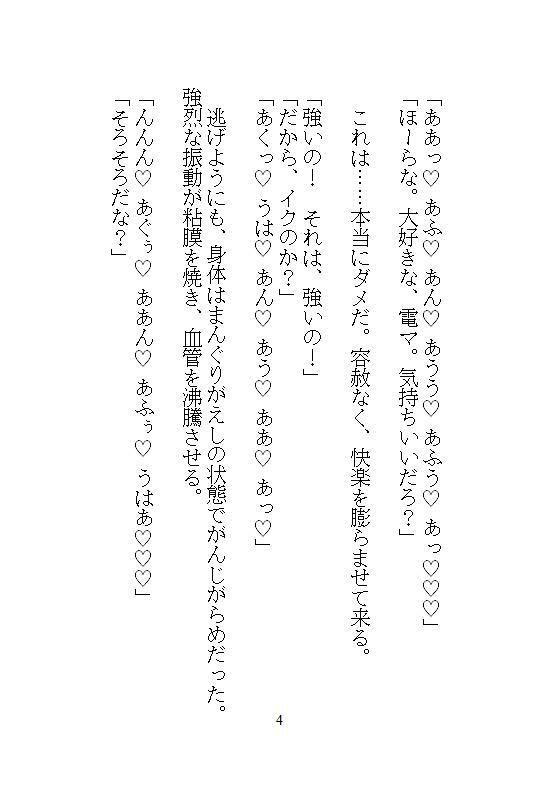 「ああっ♡ あふ♡ あん♡ あうう♡ あふう♡ あっ♡♡♡」
「ほ～らな。大好きな、電マ。気持ちいいだろ？」
これは……本当にダメだ。容赦なく、快楽を膨らませて来る。
「強いの！ それは、強いの！」
「だから、イクのか？」
「あくっ♡ うは♡ あん♡ あう♡ ああ♡ あっ♡」
逃げようにも、身体はまんぐりがえしの状態でがんじがらめだった。
強烈な振動が粘膜を焼き、血管を沸騰させる。
「んんん♡ あぐぅ♡ ああん♡ あふぅ♡ うはあ♡♡♡」
「そろそろだな？」
4